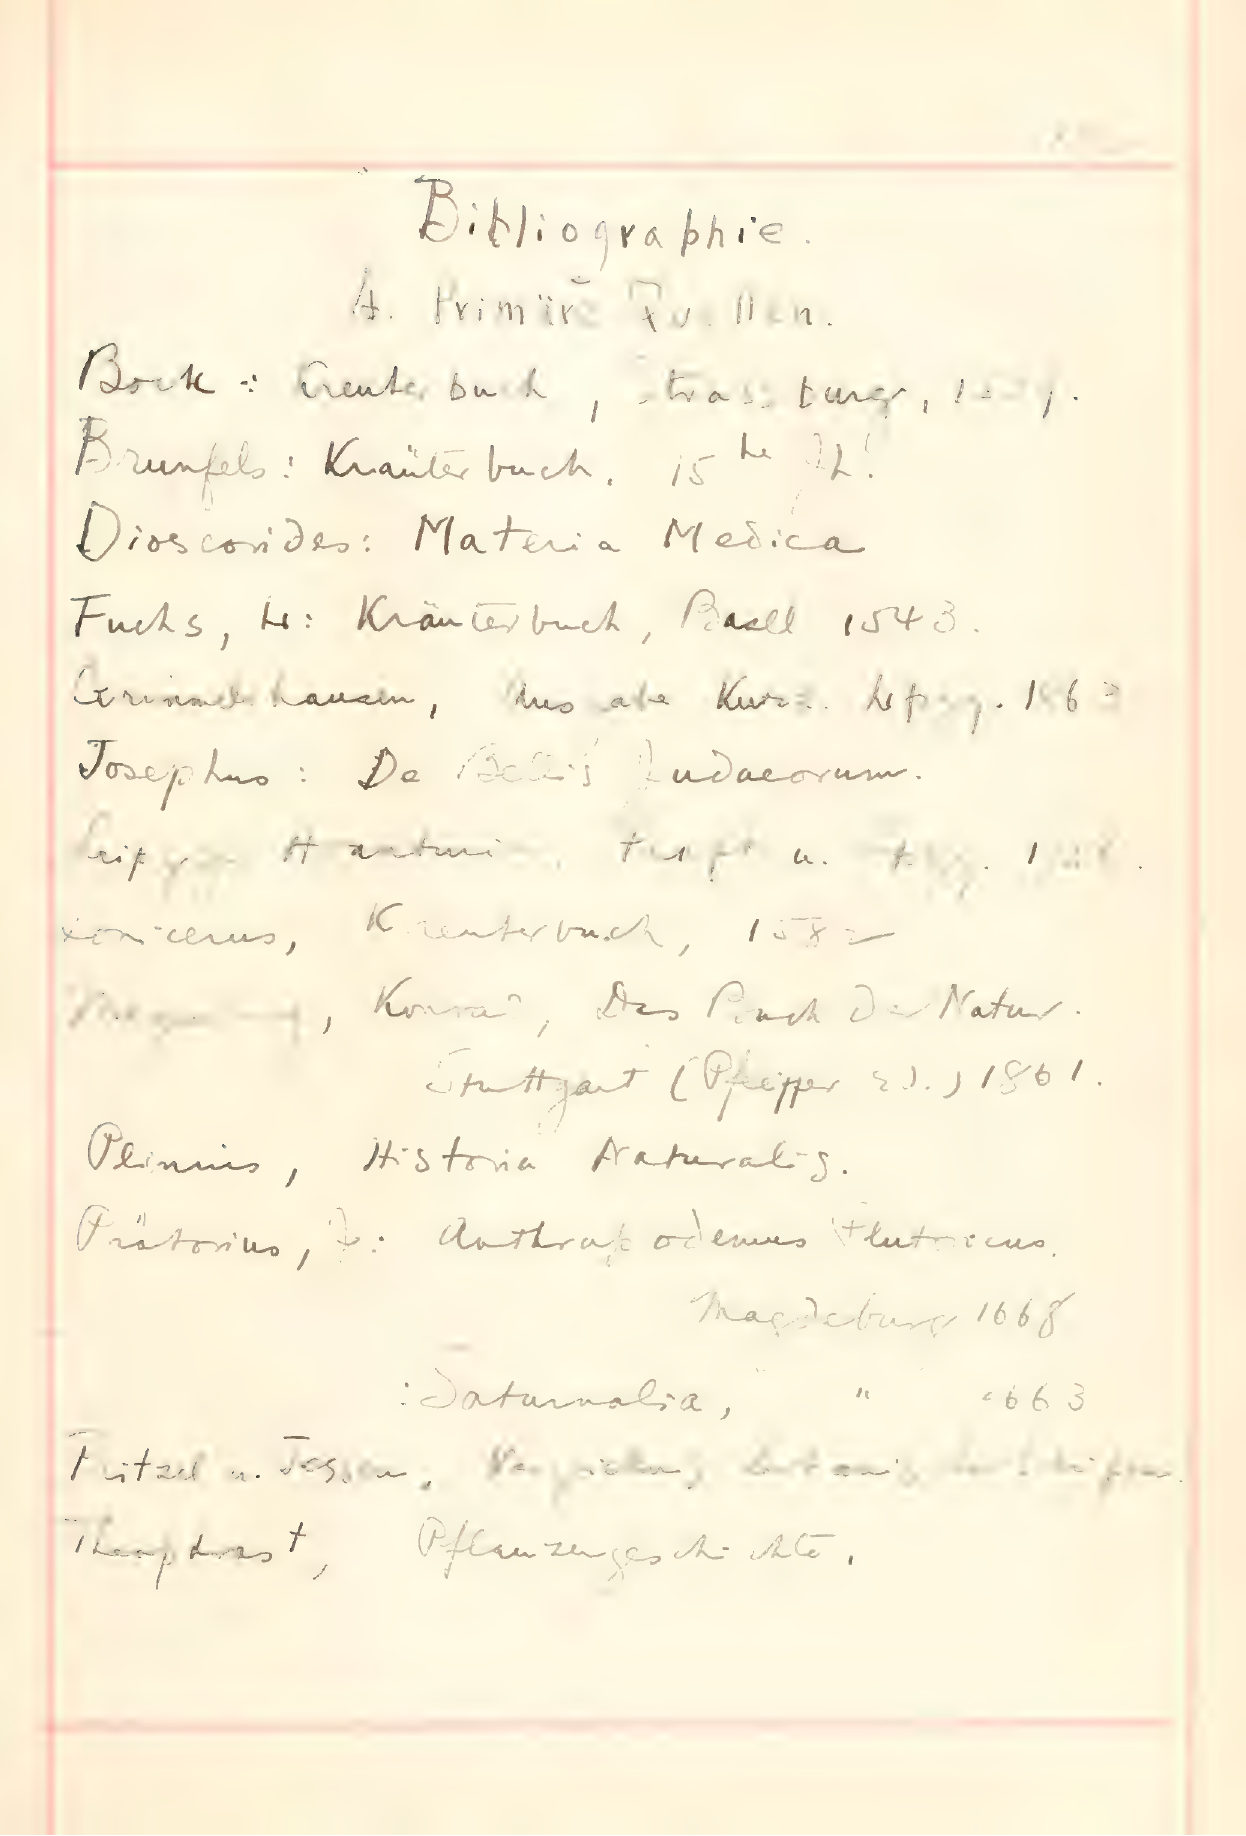 Bibliographie.
A. Primäre Quellen.
Bock: Kreuterbuch, Strassburg,
Brunfels: Kräuterbuch. 15te Jh.
Dioscorides: Materia Medica
Fuchs, L: Kräuterbuch, Basel 1543.
Grimmelshausen, Ausgabe Kurz. Lpzg. 1863
Josephus: De Bellis Judaeorum.
u.
Lonicerus, Kreuterbuch, 1582
Megenberg, Konrad, Das Buch der Natur.
Stuttgart (Pfeiffer ed.) 1861.
Plinius, Historia Naturalis.
Prätorius, J: Anthropodemus Plutonicus.
Magdeburg 1668
: Saturnalia, " 1663
Pritzel u. Jessen,
Theophrast, Pflanzengeschichte.